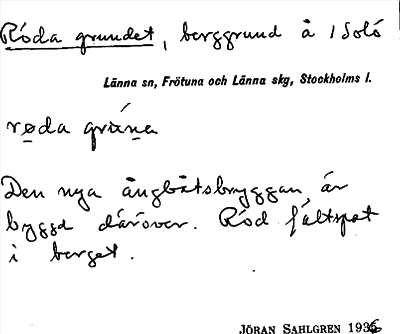 Röda grundet, berggrund å / Solö
Länna sn, Frötuna och Länna skg, Stockholms l.
røda
Den nya ångbåtsbryggan är
byggd däröver. Röd fältspat
i berget.
JÖRAN SAHLGREN 1936